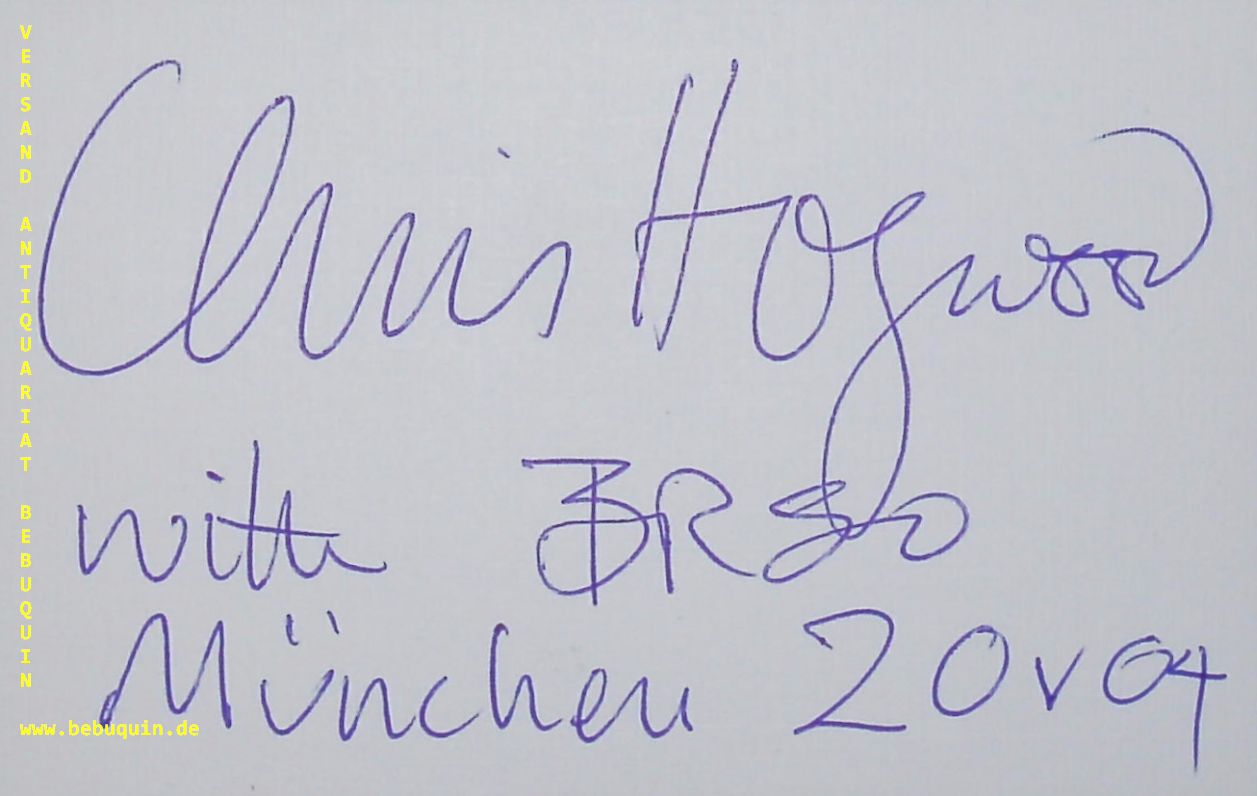 VERSAND ANTIQUARIAT BEBUQUIN
Chris Hogwood
with BRSO
München 20 v 04
www.bebuquin.de